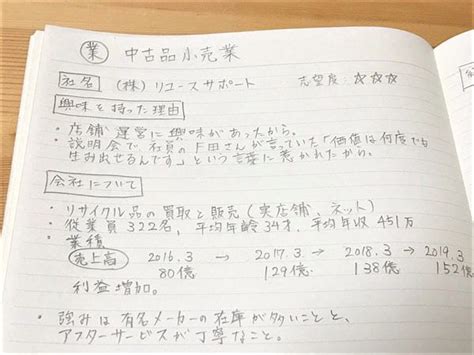 業 中古品小売業
社名 (株)リユースサポート 志望度：☆☆☆
興味を持った理由
・店舗運営に興味があったから。
・説明会で、社員の下田さんが言っていた「価値は何度でも
生み出せるんです」という言葉に惹かれたから。
会社について
・リサイクル品の買取と販売（実店舗、ネット）
・従業員322名，平均年齢34才，平均年収451万
・業績
売上高 2016.3 → 2017.3 → 2018.3 → 2019.3
80億 129億 138億 152億
利益増加。
・強みは有名メーカーの在庫が多いことと、
アフターサービスが丁寧なこと。